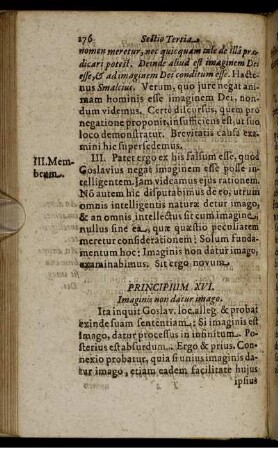 276 Sectio Tertia
nomen meretur, nec quicquam tale de illâ præ-
dicari potest. Deinde aliud est imaginem Dei
esse, & ad imaginem Dei conditum esse. Hacte-
nus Smalcius. Verum, quo jure negat ani-
mam hominis esse imaginem Dei, non-
dum videmus. Certò discursus, quem pro
negatione proponit, insufficiens est, ut suo
loco demonstratur. Brevitatis causâ exa-
mini hic supersedemus.
III. Mem-
brum.
III. Patet ergo ex his falsum esse, quod
Goslavius negat imaginem esse posse in-
telligentem. Jam videamus ejus rationem.
Nō autem hic disputabimus de eo, utrum
omnis intelligentis naturæ detur imago,
& an omnis intellectus sit cum imagine,
nullus sine eâ, quæ quæstio peculiarem
meretur considerationem: Solum funda-
mentum hoc: Imaginis non datur imago,
examinabimus. Sit ergo novum
PRINCIPIUM XVI.
Imaginis non datur imago.
Ita inquit Goslav. loc. alleg. & probat
exinde suam sententiam: Si imaginis est
imago, datur processus in infinitum. Po-
sterius est absurdum. Ergo & prius. Con-
nexio probatur, quia si unius imaginis da-
tur imago, etiam eadem facilitate hujus
ipsius